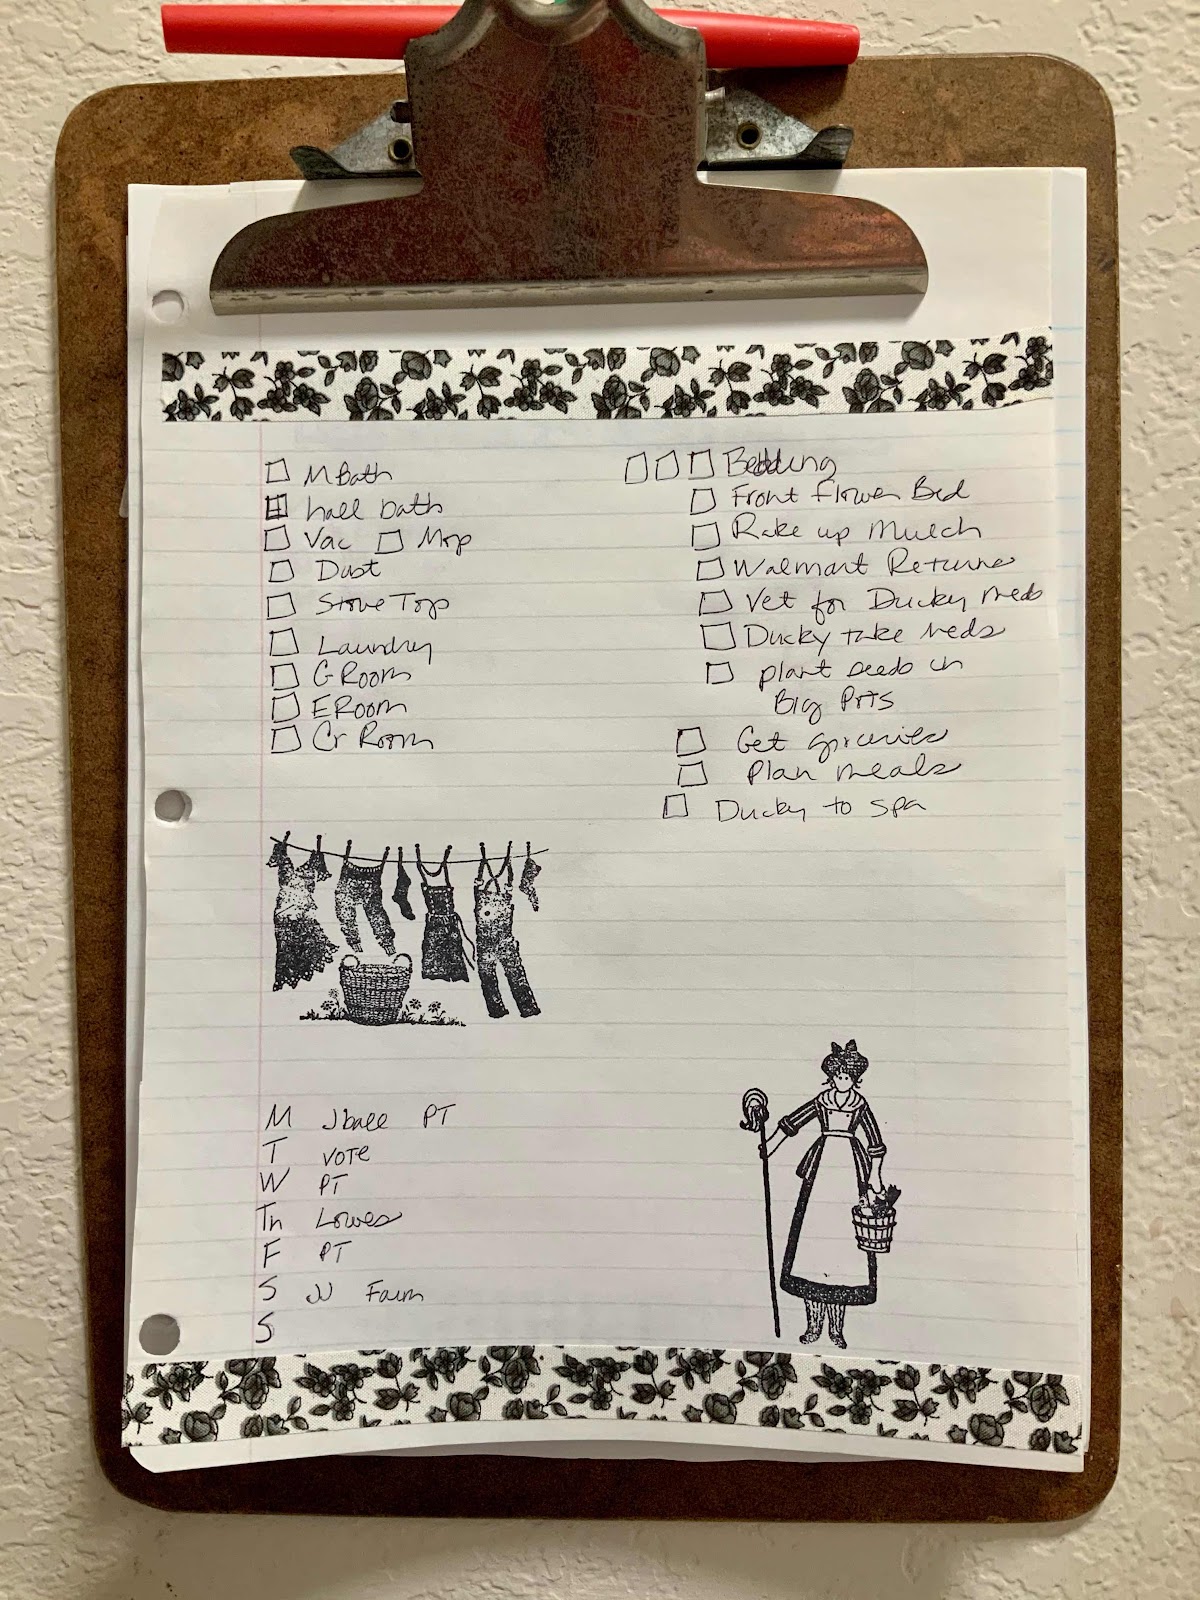 M Bath
hall bath
Vac Mop
Dust
Stove Top
Laundry
G Room
E Room
Cr Room
Bedding
Front Flower Bed
Rake up Mulch
Walmart Returns
Vet for Ducky meds
Ducky take meds
plant seeds in
Big Pots
Get groceries
Plan meals
Ducky to spa
M Jball PT
T VOTE
W PT
Th Lowes
F PT
S JJ Farm
S